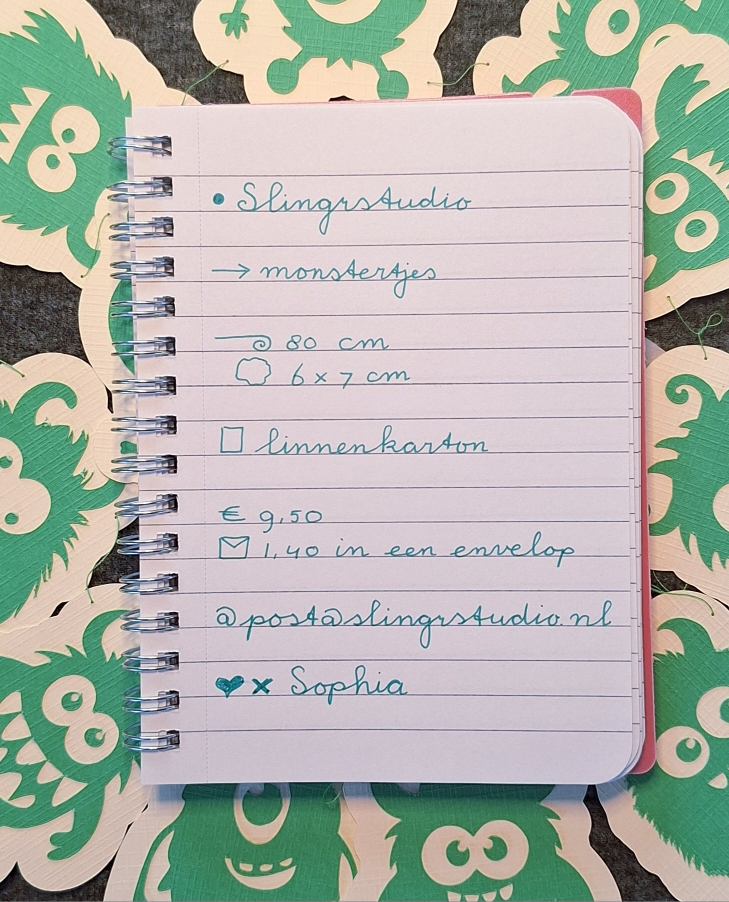 • Slingrstudio
→ monstertjes
80 cm
6 x 7 cm
linnenkarton
€ 9,50
1,40 in een envelop
@post@slingrstudio.nl
♥ x Sophia